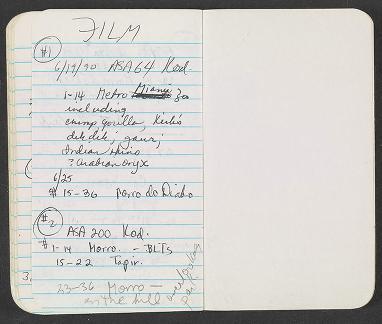 FILM
#1
6/19/90 ASA 64 Kod.
1-14 Metro Miami Zoo
including
chimp, gorilla, Kirk's
dik dik; gaur;
Indian rhino
? Arabian oryx
6/25
# 15-36 Morro do Diabo
#2
ASA 200 Kod.
# 1-14 Morro. - BLTs
15-22 Tapir.
3.
23-36 Morro -
on the hill